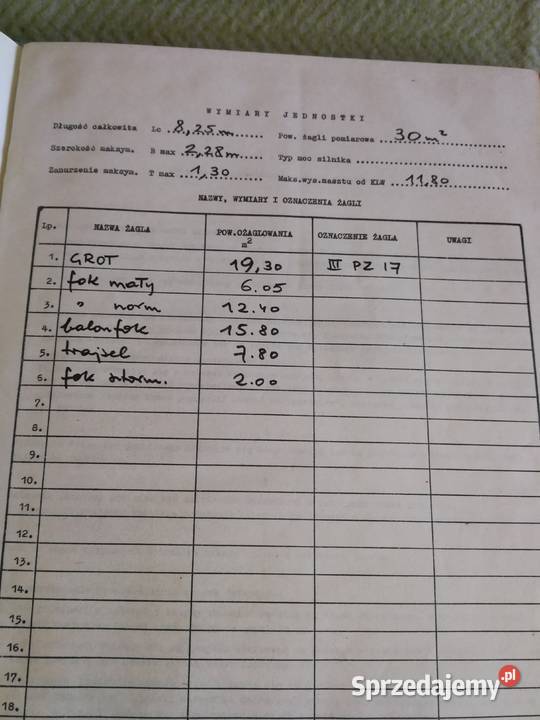 WYMIARY JEDNOSTKI
Długość całkowita Lc 8,25m Pow. żagli pomiarowa 30m²
Szerokość maksym. B max 2,28m Typ moc silnika
Zanurzenie maksym. T max 1,30 Maks.wys.masztu od KLW 11,80
NAZWY, WYMIARY I OZNACZENIA ŻAGLI
Lp. NAZWA ŻAGLA POW.OŻAGLOWANIA m² OZNACZENIE ŻAGLA UWAGI
1. GROT 19,30 III PZ 17
2. fok mały 6.05
3. " norm 12.40
4. balonfok 15.80
5. trajsel 7.80
6. fok sztorm. 2.00
7.
8.
9.
10.
11.
12.
13.
14.
15.
16.
17.
18.
Sprzedajemy.pl